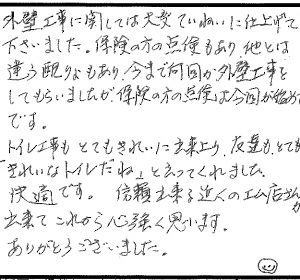 外壁工事に関しては大変ていねいに仕上げて
下さいました。保険の方の点検もあり他とは
違う配りょもあり、今まで何回か外壁工事を
してもらいましたが、保険の方の点検は今回が始めて
です。
トイレ工事も とてもきれいに出来上り、友達も、とても
きれいなトイレだね」と言ってくれました。
快適です。 信頼出来る近くの工ム店さんが
出来て これから心強く思います。
ありがとうございました。